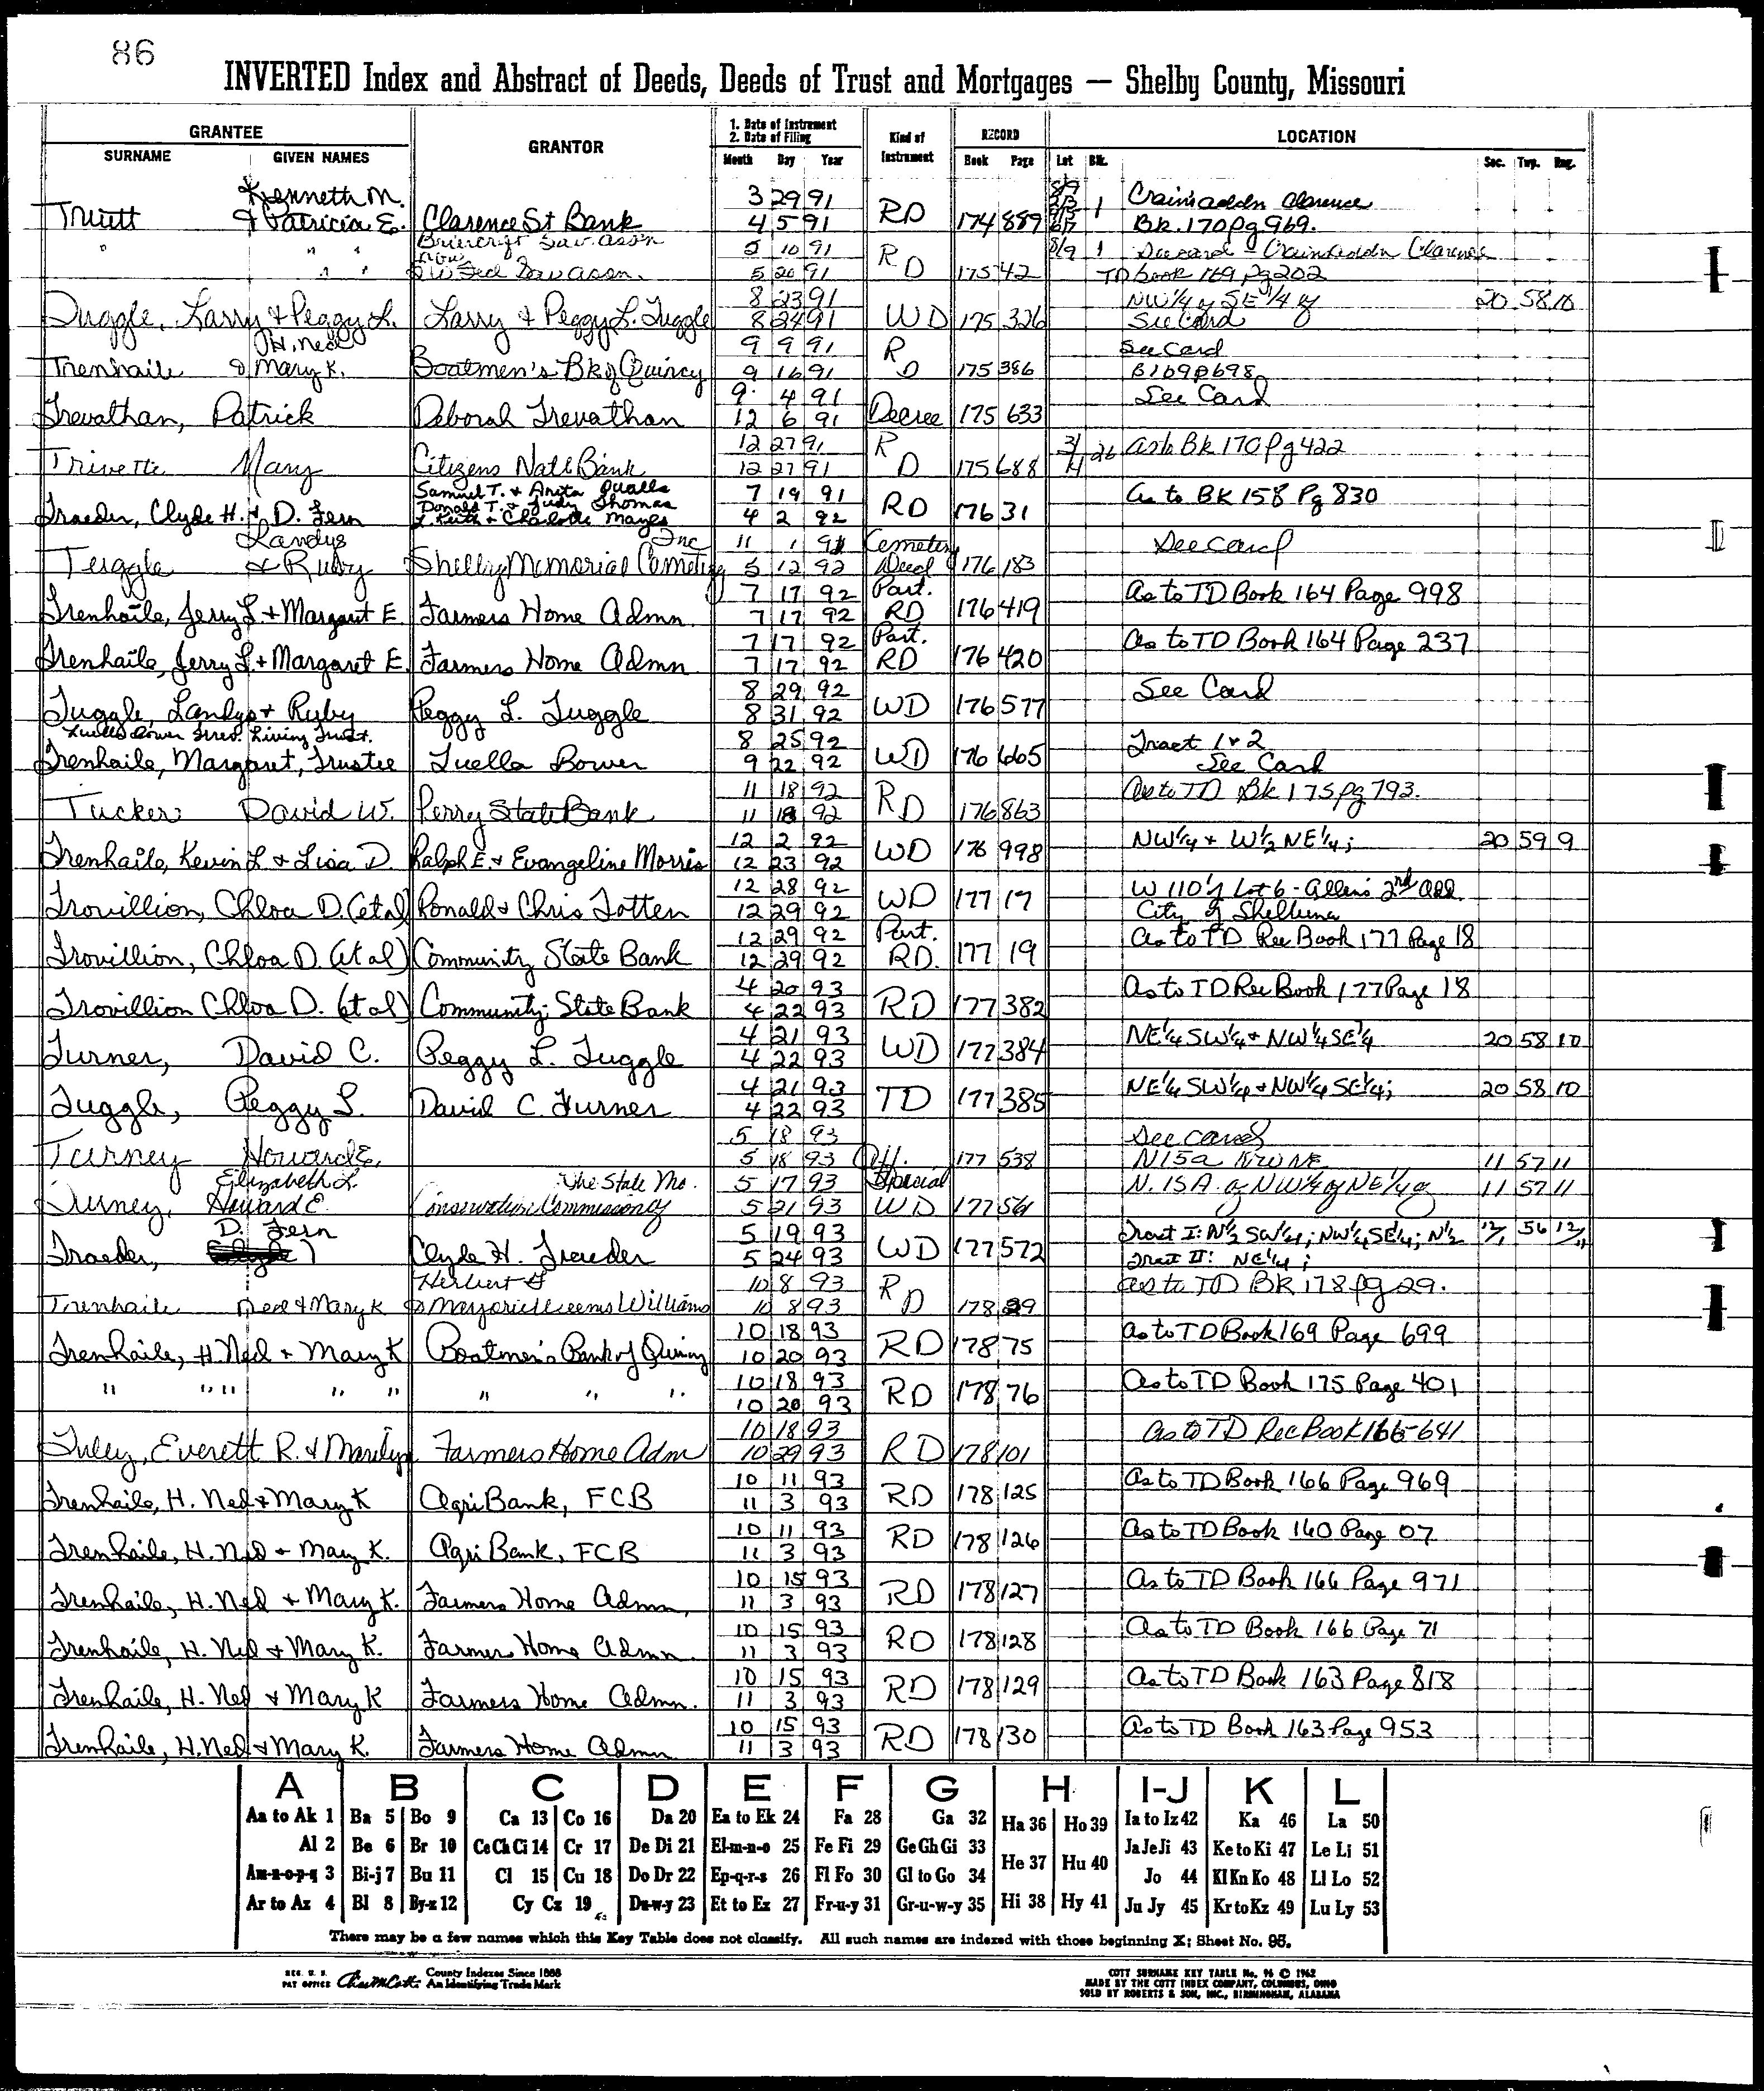 86
INVERTED Index and Abstract of Deeds, Deeds of Trust and Mortgages — Shelby County, Missouri
GRANTEE
SURNAME GIVEN NAMES
GRANTOR
1. Date of Instrument
2. Date of Filing
Month Day Year
Kind of Instrument
RECORD
Book Page
LOCATION
Lot Blk. Sec. Twp. Rng.
Kenneth M. 3 29 91 8/9 Crains addn Clarence
Truitt & Patricia E. Clarence St Bank 4 5 91 RD 174 889 1 Bk. 170 pg 969.
" " " Briercroft Sav. assn 5 10 91 RD 8/9 1 See card - Crains addn Clarence
now
Sav assn. 5 20 91 175 42 TD book 169 pg 202
8 23 91 NW 1/4 of SE 1/4 of 20 58 10
Tuggle, Larry & Peggy L. Larry & Peggy L. Tuggle 8 24 91 WD 175 326 See Card
H. Ned 9 9 91 See Card
Trenhaile & Mary K. Boatmen's Bk of Quincy 9 16 91 RD 175 386 B169 p698
Trevathan, Patrick Deborah Trevathan 9 4 91 Decree See Card
12 6 91 175 633
12 27 91 3/4 26 as to Bk 170 Pg 422
Trivette Mary Citizens Natl Bank 12 27 91 RD 175 688
Samuel T. & Anita Qualls 7 19 91 as to BK 158 Pg 830
Traeder, Clyde H. & D. Fern Donald T. & Judy Thomas RD 176 31
J. Keith & Charlotte Mayes 4 2 92
Landys Inc 11 1 91 Cemetery See card
Tuggle & Ruby Shelby Memorial Cemetery 5 12 92 Deed 176 183
7 17 92 Part. As to TD Book 164 Page 998
Trenhaile, Jerry L & Margaret E. Farmers Home Admn 7 17 92 RD 176 419
7 17 92 Part. As to TD Book 164 Page 237
Trenhaile, Jerry L. & Margaret E. Farmers Home Admn 7 17 92 RD 176 420
8 29 92 See Card
Tuggle, Landys & Ruby Peggy L. Tuggle 8 31 92 WD 176 577
Luella Bower Irrev. Living Trust. 8 25 92 Tract 1 & 2
Trenhaile, Margaret, Trustee Luella Bower 9 22 92 WD 176 665 See Card
11 18 92 As to TD Bk 175 pg 793.
Tucker David W. Perry State Bank 11 18 92 RD 176 863
12 2 92 NW 1/4 & W 1/2 NE 1/4; 20 59 9
Trenhaile, Kevin L. & Lisa D. Ralph E. & Evangeline Morris 12 23 92 WD 176 998
12 28 92 W 110' of Lot 6 - Allen's 2nd Add.
Trovillion, Chloa D. (et al) Ronald & Chris Totten 12 29 92 WD 177 17 City of Shelbina
12 29 92 Part. As to TD Rec Book 177 Page 18
Trovillion, Chloa D. (et al) Community State Bank 12 29 92 RD. 177 19
4 20 93 As to TD Rec Book 177 Page 18
Trovillion Chloa D. (et al) Community State Bank 4 22 93 RD 177 382
4 21 93 NE 1/4 SW 1/4 & NW 1/4 SE 1/4 20 58 10
Turner, David C. Peggy L. Tuggle 4 22 93 WD 177 384
4 21 93 NE 1/4 SW 1/4 & NW 1/4 SE 1/4; 20 58 10
Tuggle, Peggy L. David C. Turner 4 22 93 TD 177 385
5 18 93 See card
Turney Howard E. 5 18 93 Aff. 177 538 N 15a NW NE 11 57 11
Elizabeth L. The State Mo. 5 17 93 Special N. 15 A. of NW 1/4 of NE 1/4 of 11 57 11
Turney, Howard E. Conservation Commission of 5 21 93 WD 177 561
D. Fern 5 19 93 Tract I: N 1/2 SW 1/4; NW 1/4 SE 1/4; N 1/2 12/1 56 12/11
Traeder, Clyde H. Traeder 5 24 93 WD 177 572 Tract II: NE 1/4;
Herbert G 10 8 93 as to TD BK 178 pg 29.
Trenhaile Ned & Mary K & Marjorie Weems Williams 10 8 93 RD 178 29
10 18 93 As to TD Book 169 Page 699
Trenhaile, H. Ned & Mary K Boatmen's Bank of Quincy 10 20 93 RD 178 75
10 18 93 As to TD Book 175 Page 401
" " " " " " " " 10 20 93 RD 178 76
10 18 93 As to TD Rec Book 166-641
Tuley, Everett R. & Marilyn Farmers Home Adm 10 29 93 RD 178 101
10 11 93 As to TD Book 166 Page 969
Trenhaile, H. Ned & Mary K Agri Bank, FCB 11 3 93 RD 178 125
10 11 93 As to TD Book 160 Page 07
Trenhaile, H. Ned & Mary K. Agri Bank, FCB 11 3 93 RD 178 126
10 15 93 As to TD Book 166 Page 971
Trenhaile, H. Ned & Mary K. Farmers Home Admn, 11 3 93 RD 178 127
10 15 93 As to TD Book 166 Page 71
Trenhaile, H. Ned & Mary K. Farmers Home Admn. 11 3 93 RD 178 128
10 15 93 As to TD Book 163 Page 818
Trenhaile, H. Ned & Mary K Farmers Home Admn. 11 3 93 RD 178 129
10 15 93 As to TD Book 163 Page 953
Trenhaile, H. Ned & Mary K. Farmers Home Admn 11 3 93 RD 178 130
A B C D E F G H I-J K L
Aa to Ak 1 Ba 5 Bo 9 Ca 13 Co 16 Da 20 Ea to Ek 24 Fa 28 Ga 32 Ha 36 Ho 39 Ia to Iz 42 Ka 46 La 50
Al 2 Be 6 Br 10 Ce Ch Ci 14 Cr 17 De Di 21 El-m-n-o 25 Fe Fi 29 Ge Gh Gi 33 He 37 Hu 40 Ja Je Ji 43 Ke to Ki 47 Le Li 51
Am-n-o-p-q 3 Bi-j 7 Bu 11 Cl 15 Cu 18 Do Dr 22 Ep-q-r-s 26 Fl Fo 30 Gl to Go 34 Hi 38 Hy 41 Jo 44 Kl Kn Ko 48 Ll Lo 52
Ar to Az 4 Bl 8 By-z 12 Cy Cz 19 Du-w-y 23 Et to Ez 27 Fr-u-y 31 Gr-u-w-y 35 Ju Jy 45 Kr to Kz 49 Lu Ly 53
There may be a few names which this Key Table does not classify. All such names are indexed with those beginning X; Sheet No. 95.
REG. U. S. PAT OFFICE County Indexes Since 1888
An Identifying Trade Mark
COTT SURNAME KEY TABLE No. 96 © 1962
MADE BY THE COTT INDEX COMPANY, COLUMBUS, OHIO
SOLD BY ROBERTS & SON, INC., BIRMINGHAM, ALABAMA